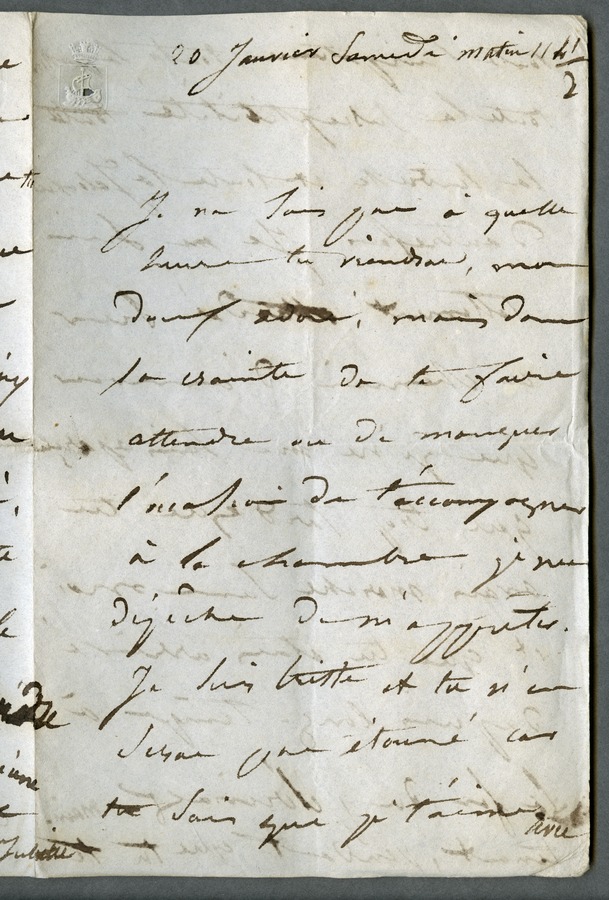 20 Janvier Samedi matin 11 h 1/2
Je ne sais pas à quelle
heure tu viendras, mon
doux adoré, mais dans
la crainte de te faire
attendre ou de manquer
l'occasion de t'accompagner
à la chambre je me
dépêche de m'apprêter.
Je suis triste et tu n'en
seras pas étonné car
tu sais que je t'aime
avec
Juliette